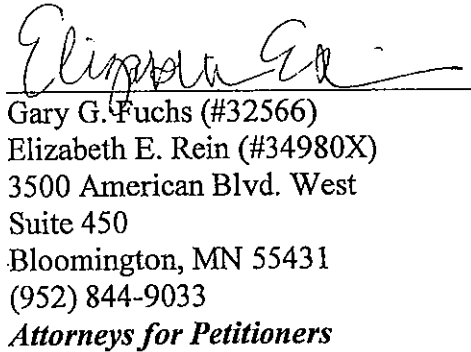 Elizabeth
Gary G. Fuchs (#32566)
Elizabeth E. Rein (#34980X)
3500 American Blvd. West
Suite 450
Bloomington, MN 55431
(952) 844-9033
Attorneys for Petitioners